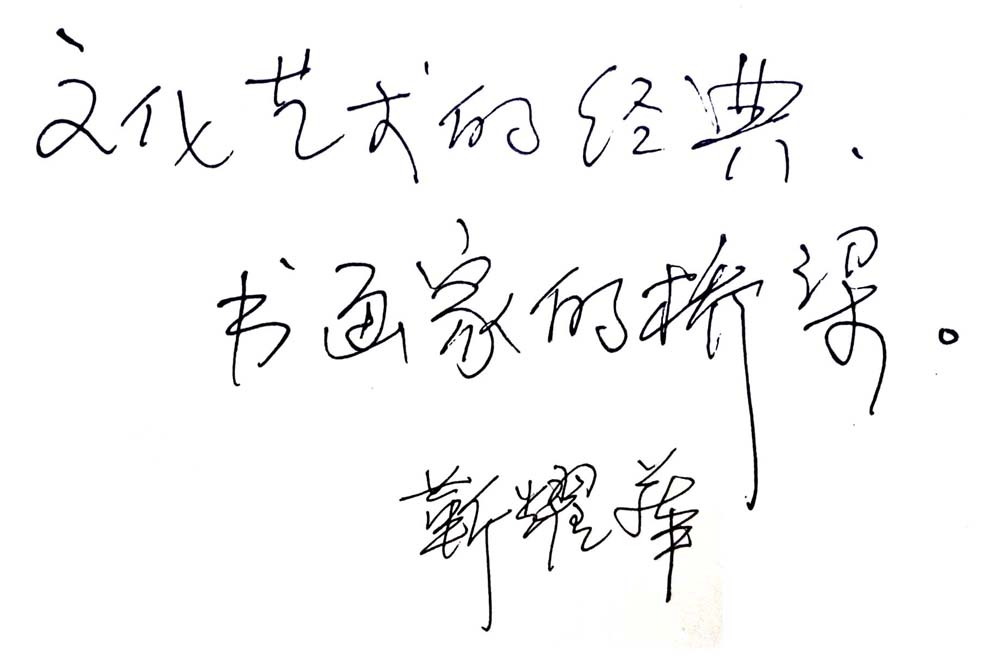 文化艺术的经典、
书画家的桥梁。
靳耀华